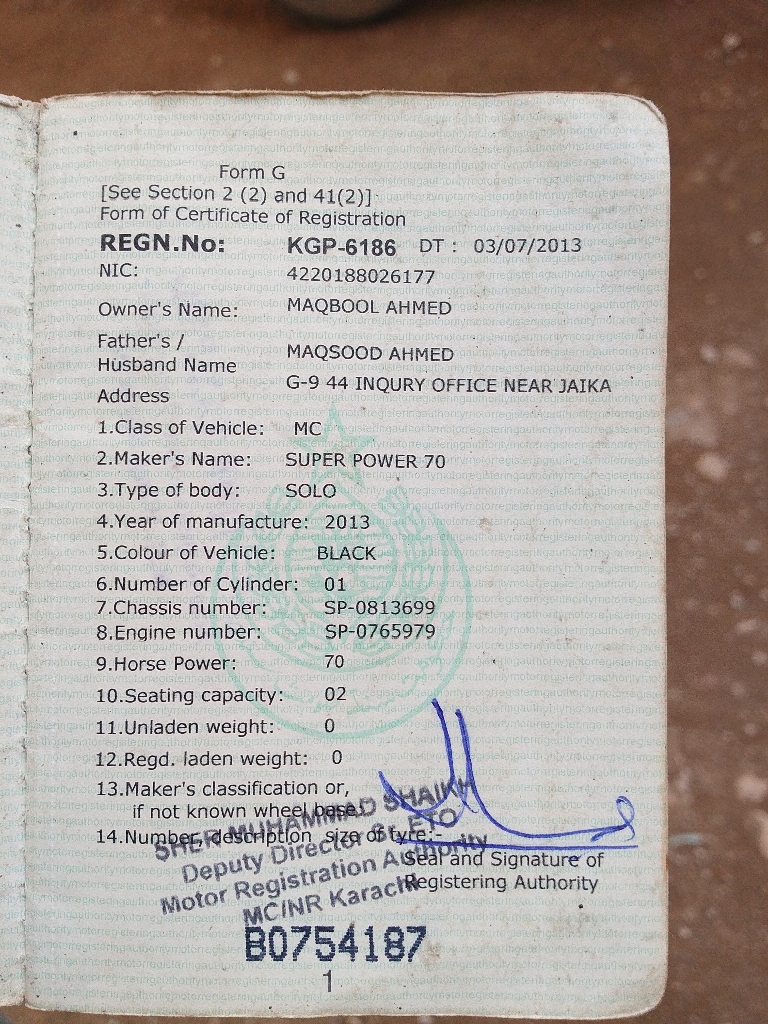 Form G
[See Section 2 (2) and 41(2)]
Form of Certificate of Registration
REGN.No: KGP-6186 DT : 03/07/2013
NIC: 4220188026177
Owner's Name: MAQBOOL AHMED
Father's /
Husband Name MAQSOOD AHMED
Address G-9 44 INQURY OFFICE NEAR JAIKA
1.Class of Vehicle: MC
2.Maker's Name: SUPER POWER 70
3.Type of body: SOLO
4.Year of manufacture: 2013
5.Colour of Vehicle: BLACK
6.Number of Cylinder: 01
7.Chassis number: SP-0813699
8.Engine number: SP-0765979
9.Horse Power: 70
10.Seating capacity: 02
11.Unladen weight: 0
12.Regd. laden weight: 0
13.Maker's classification or,
if not known wheel base
14.Number, description size of tyre:-
SHER MUHAMMAD SHAIKH
Deputy Director ETO
Motor Registration Authority
MC/NR Karachi
Seal and Signature of
Registering Authority
B0754187
1